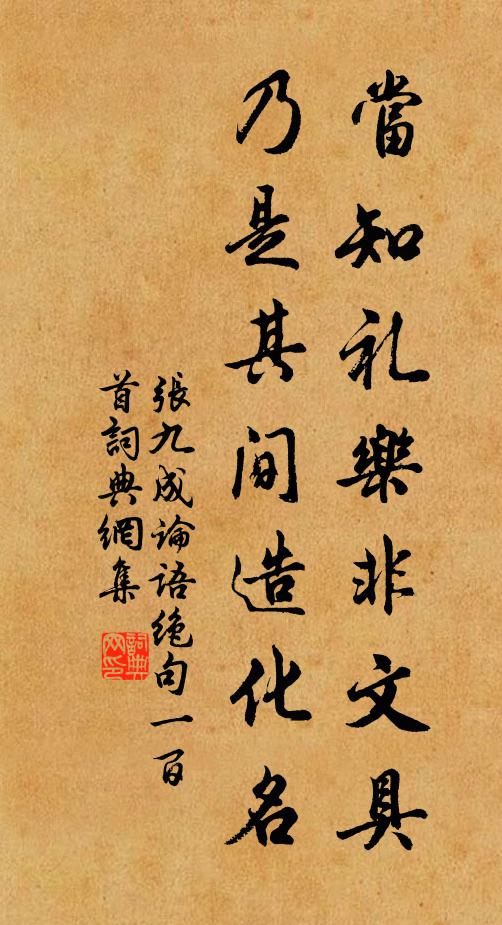 當知礼樂非文具
乃是其间造化名
張九成論語絶句一百
首詞典網集
詞典网印